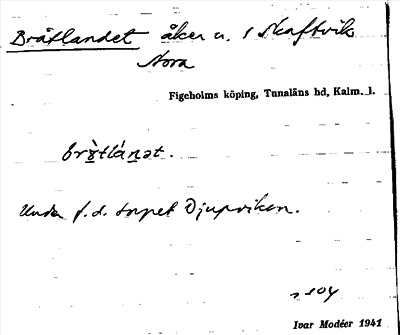 Bråtlandet åker u. 1 Skaftvik
Nora
Figeholms köping, Tunaläns hd, Kalm. l.
brò̤tlánət.
Under f.d. torpet Djupviken.
504
Ivar Modéer 1941